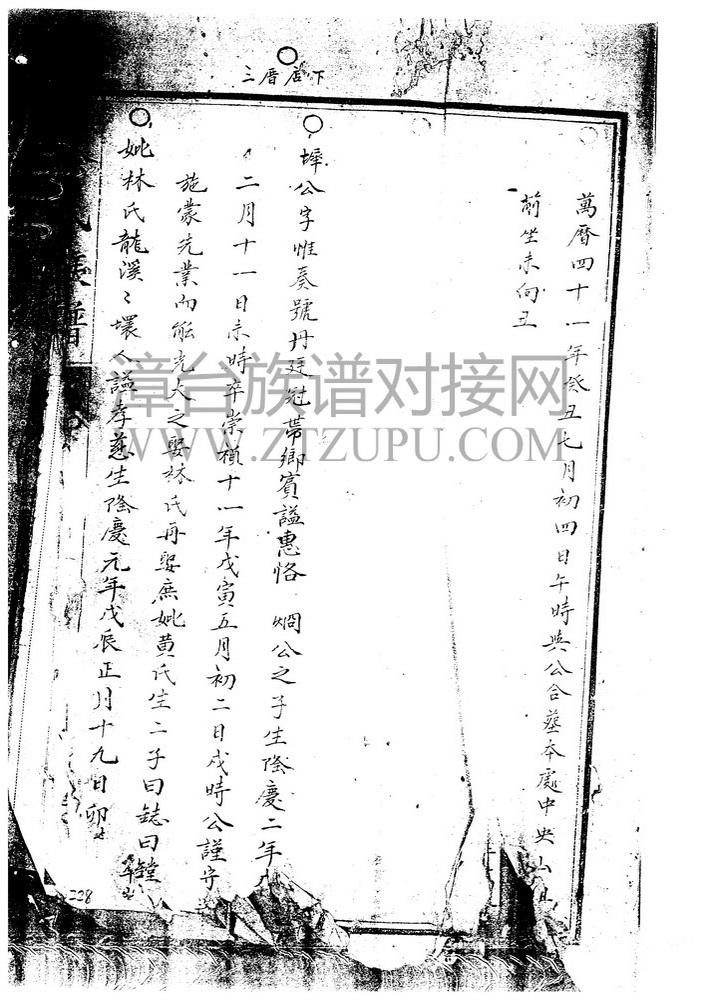 三厝店下
萬曆四十一年癸丑七月初四日午時與公合葬本處中央山
前坐未向丑
墀公字惟奏號丹廷冠帶鄉賓謚惠恪 炯公之子生隆慶二年
二月十一日未時卒崇禎十一年戊寅五月初二日戌時公謹守
施蒙先業而能光大之娶林氏再娶庶妣黃氏生二子曰鋕曰鏜
妣林氏龍溪〻壞人謚孝慈生隆慶元年戊辰正月十九日卯
卒
譜
228
漳台族谱对接网
WWW.ZTZUPU.COM